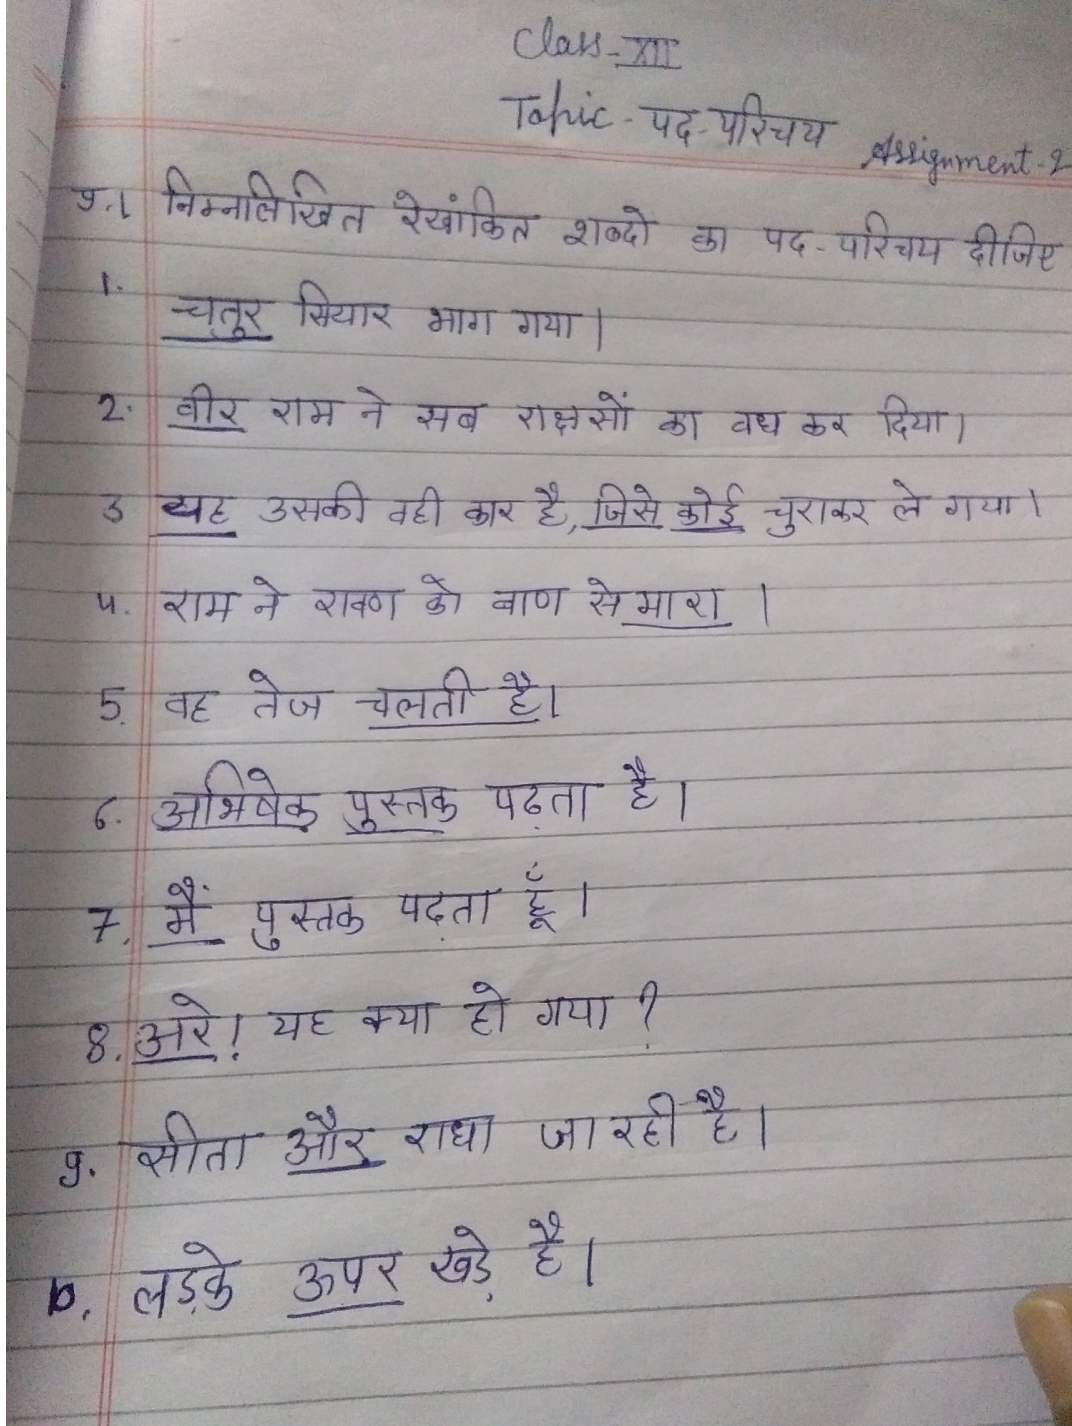 Class-XII
Topic - पद-परिचय
Assignment-2
प्र.1 निम्नलिखित रेखांकित शब्दो का पद-परिचय दीजिए
1. चतुर सियार भाग गया।
2. वीर राम ने सब राक्षसों का वध कर दिया।
3 यह उसकी वही कार है, जिसे कोई चुराकर ले गया।
4. राम ने रावण को बाण से मारा।
5. वह तेज चलती है।
6. अभिषेक पुस्तक पढ़ता है।
7. मैं पुस्तक पढ़ता हूँ।
8. अरे! यह क्या हो गया ?
9. सीता और राधा जा रही है।
10. लड़के ऊपर खड़े है।